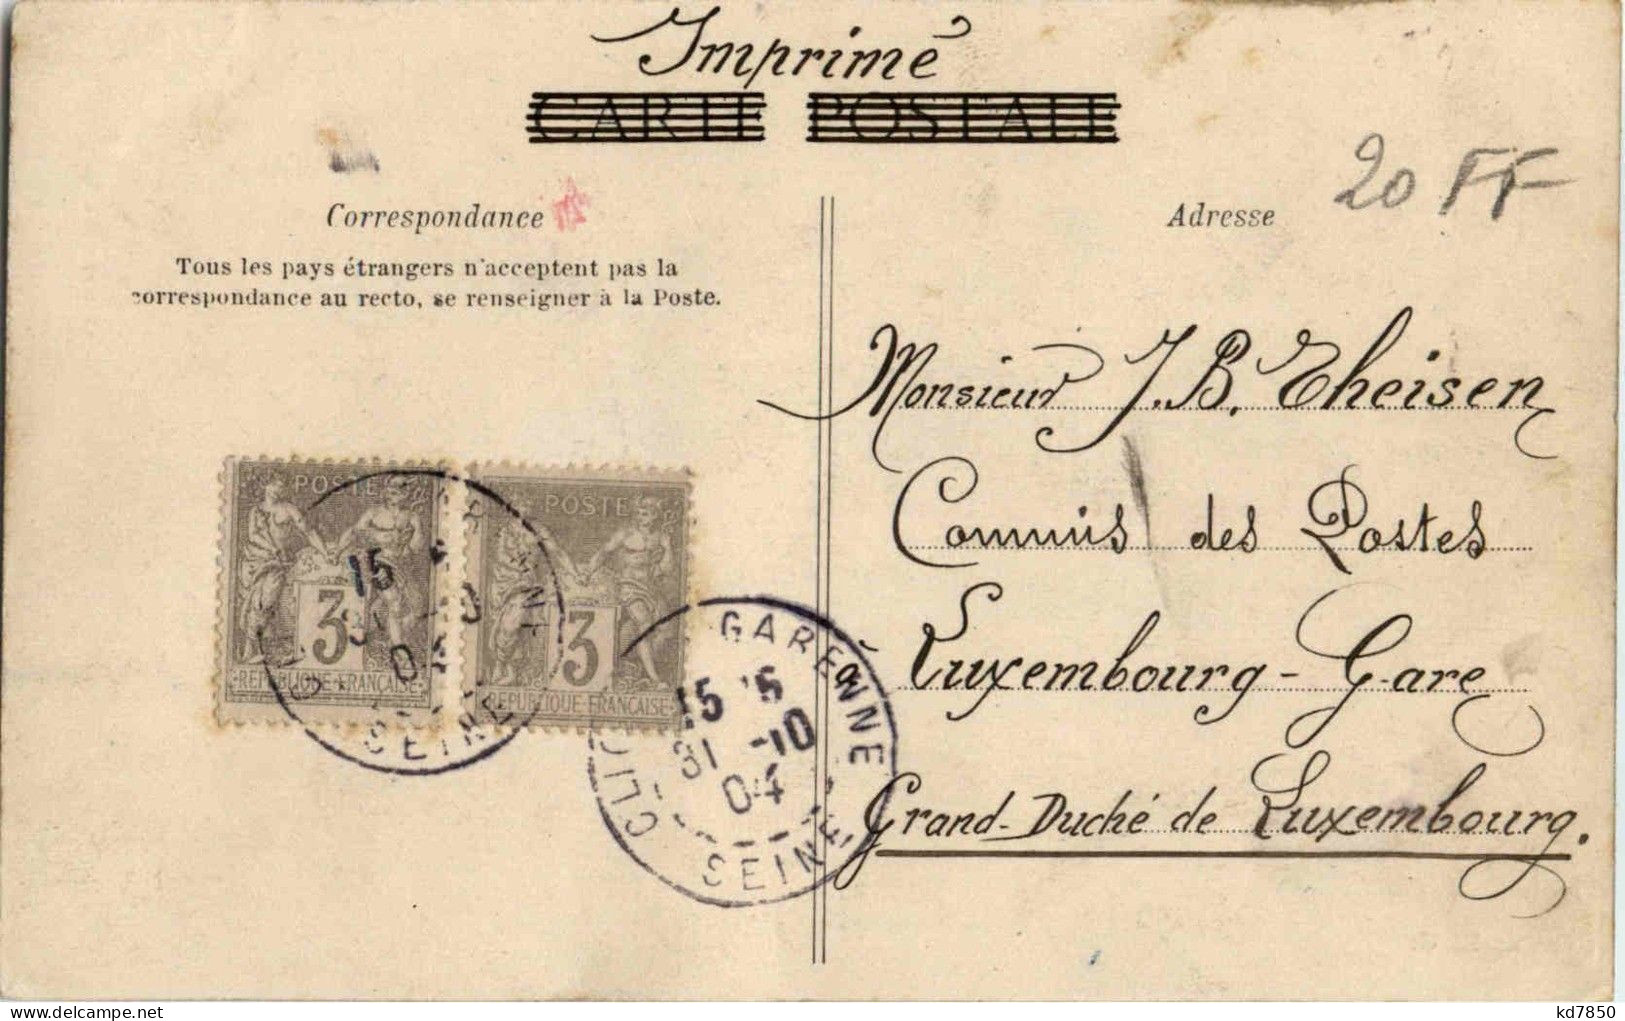 Imprimé
CARTE POSTALE
20 FF
Correspondance
Adresse
Tous les pays étrangers n'acceptent pas la
correspondance au recto, se renseigner à la Poste.
Monsieur J.B. Theisen
Commis des Postes
à
Luxembourg-Gare
Grand-Duché de Luxembourg.
POSTE
3
REPUBLIQUE FRANÇAISE
POSTE
3
REPUBLIQUE FRANÇAISE
15
SEINE
GARENNE
15 15
31 -10
04
SEINE
kd7850